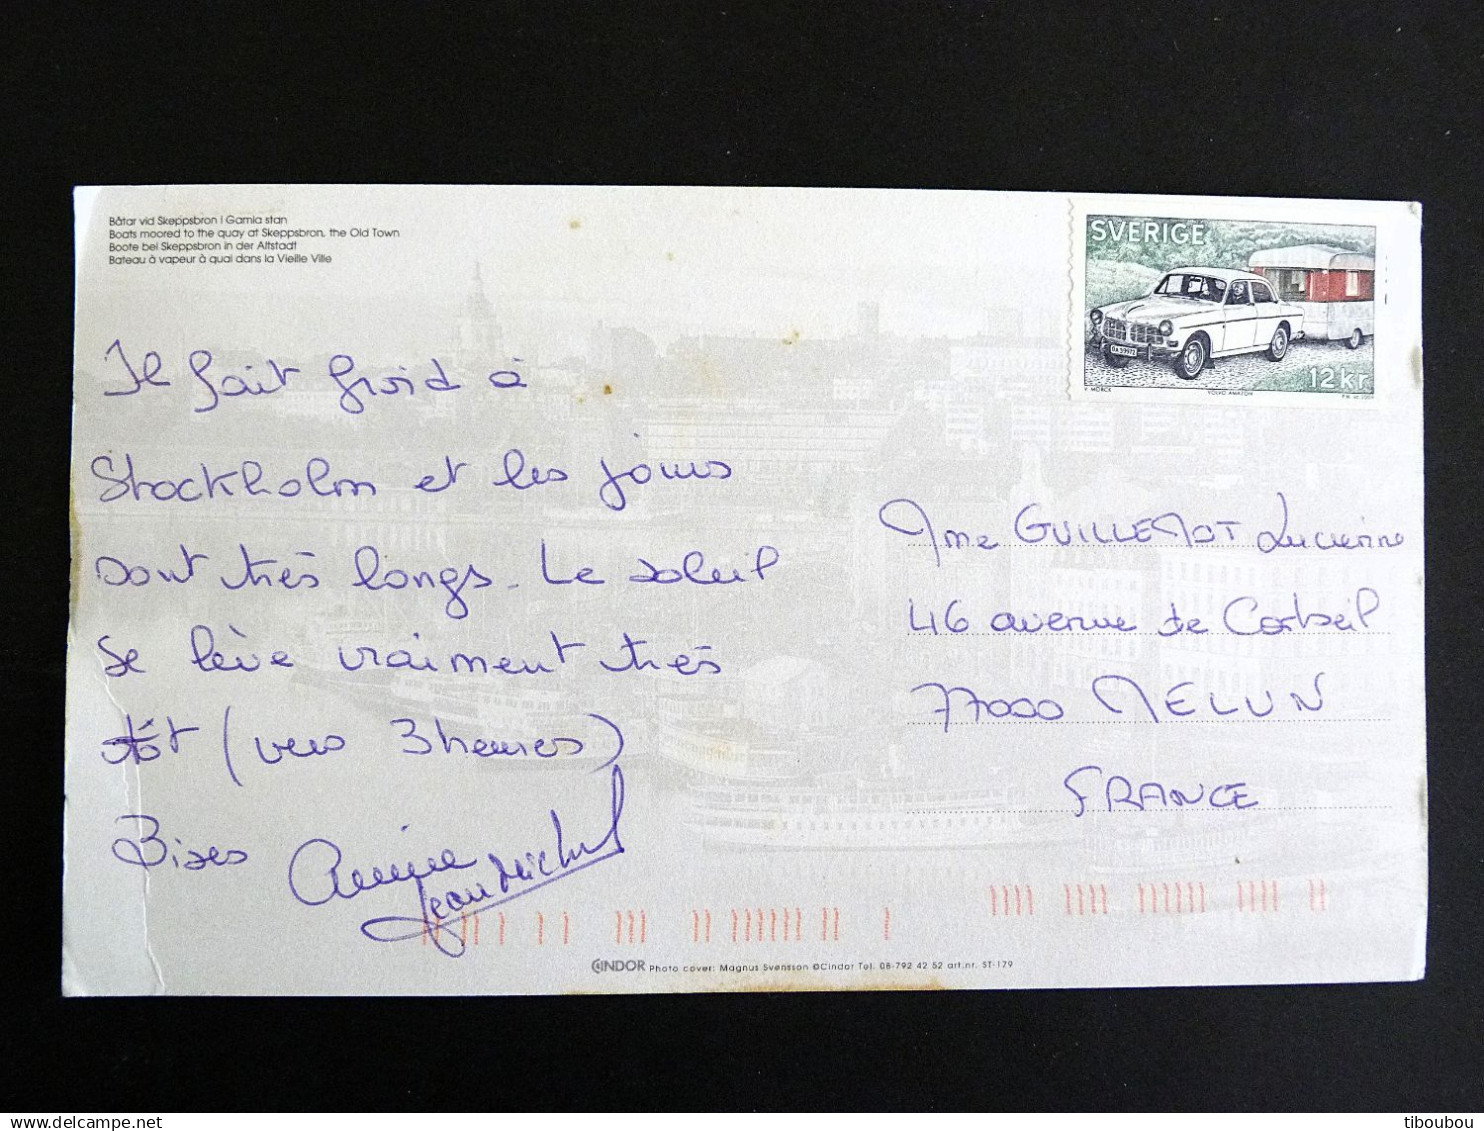 Båtar vid Skeppsbron i Gamla stan
Boats moored to the quay at Skeppsbron, the Old Town
Boote bei Skeppsbron in der Altstadt
Bateau à vapeur à quai dans la Vieille Ville
SVERIGE
12 kr
V. MÖRCK
VOLVO AMAZON
Il fait froid à
Stockholm et les jours
sont très longs. Le soleil
se lève vraiment très
tôt (vers 3 heures)
Bises
Annie
Jean Michel
Mme GUILLEMOT Lucienne
46 avenue de Corbeil
77000 MELUN
FRANCE
CINDOR Photo cover: Magnus Svensson ©Cindor Tel. 08-792 42 52 art.nr. ST-179
tiboubou